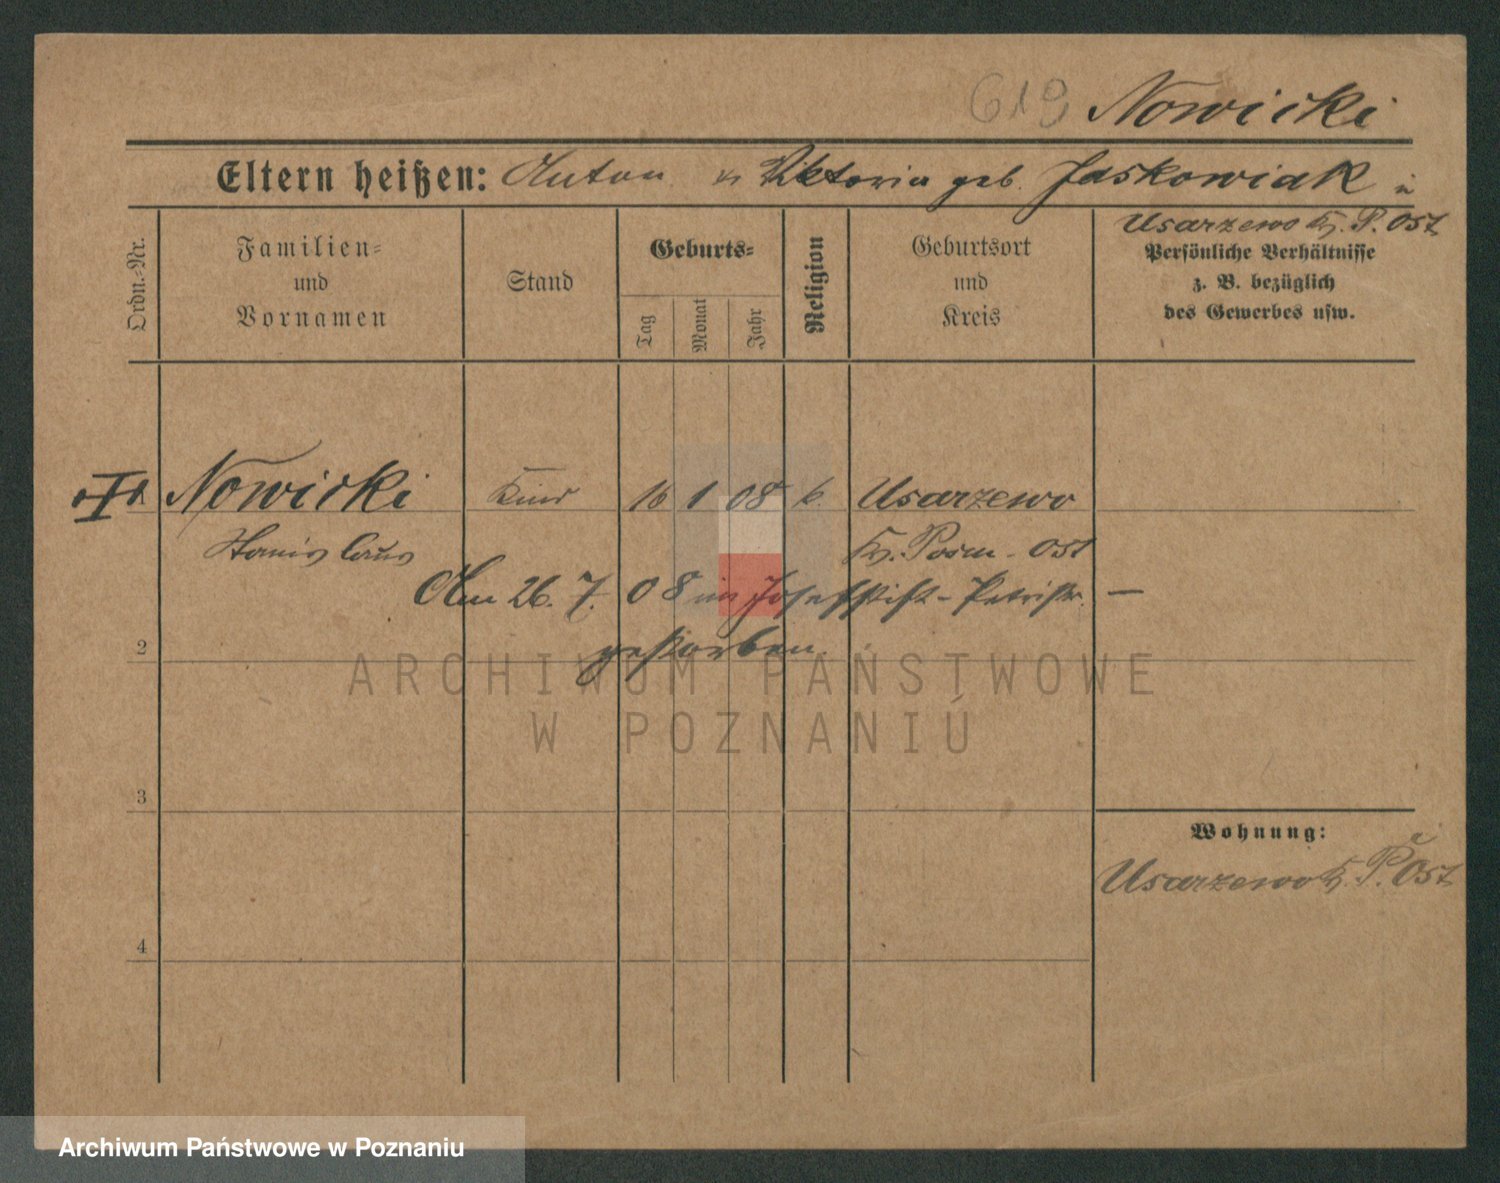 619 Nowicki
Eltern heißen: Anton u Viktoria geb. Jaskowiak in
Usarzewo Kr. P. Ost
Ordn.-Nr.
Familien-
und
Vornamen
Stand
Geburts-
Tag
Monat
Jahr
Religion
Geburtsort
und
Kreis
Persönliche Verhältnisse
z. B. bezüglich
des Gewerbes usw.
Nowicki Kind 16 1 08 k. Usarzewo
Stanislaus Kr. Posen - Ost
Am 26. 7. 08 im Josefstift - Petristr. —
gestorben.
2
3
4
Wohnung:
Usarzewo Kr. P. Ost
ARCHIWUM PAŃSTWOWE
W POZNANIU
Archiwum Państwowe w Poznaniu